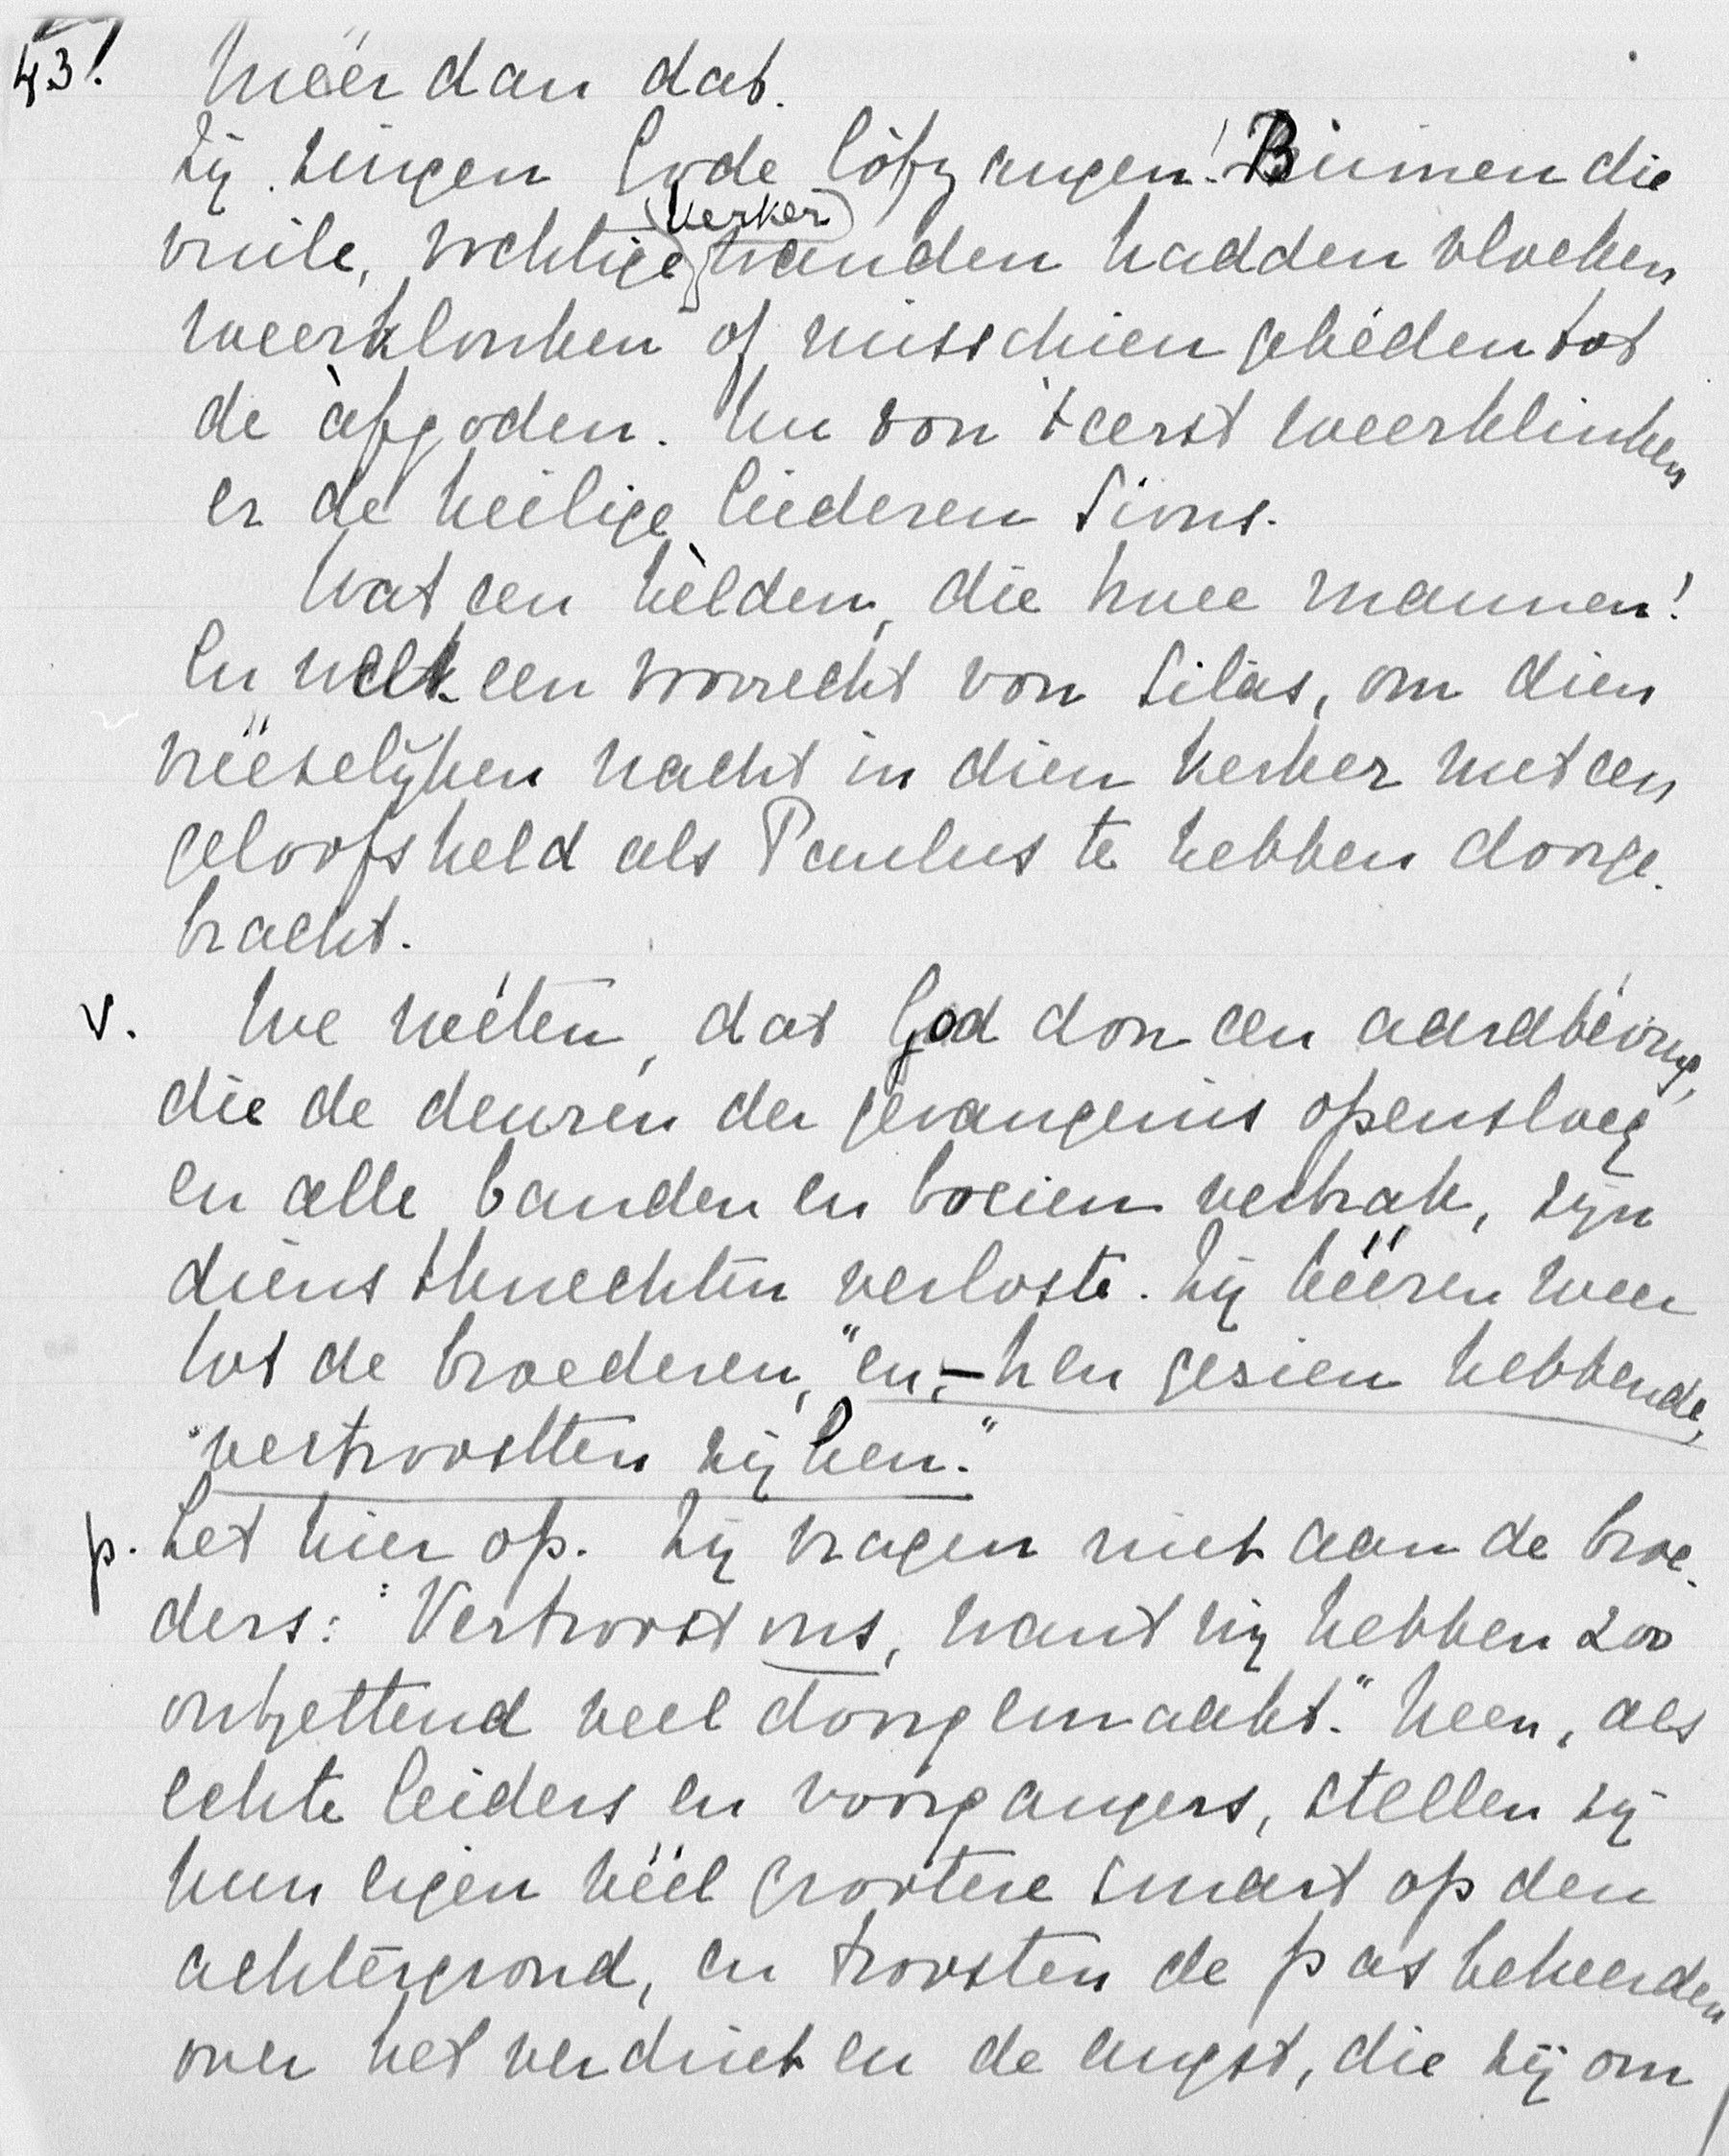 43! Méér dan dat.
Zij zingen Gode lòfzangen! Binnen die
vuile, vochtige (kerker) wanden hadden vloeken
weerklonken of misschien gebéden tot
de àfgoden. Nu voor 't eerst weerklinken
er de heilige liederen Sions.
Wat een hèlden, die twee mannen!
En welk een voorrecht voor Silas, om dien
vréeselijken nacht in dien kerker met een
geloofsheld als Paulus te hebben doorge-
bracht.
v. We wéten, dat God door een aardbéving,
die de deuren der gevangenis opensloeg
en alle banden en boeien verbrak, zijn
dienstknechten verloste. Zij kééren weer
tot de broederen, "en, - hen gezien hebbende,
"vertroostten zij hen."
p. Let hier op. Zij vragen niet aan de broe-
ders: "Vertroost ons, want wij hebben zoo
ontzettend veel doorgemaakt." Neen, als
echte leiders en voorgangers, stellen zij
hun eigen héél grootere smart op den
achtergrond, en troosten de pas bekeerden
over het verdriet en de angst, die zij om